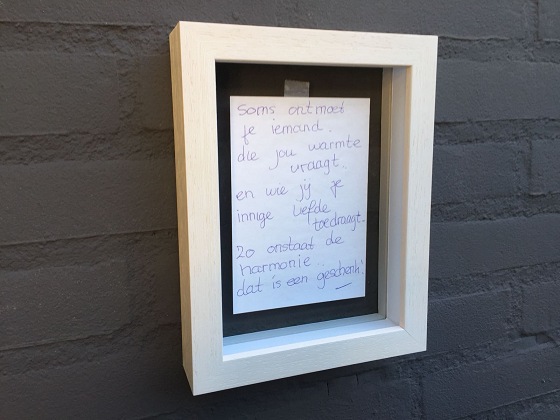 Soms ontmoet
je iemand.
die jou warmte
vraagt.
en wie jij je
innige liefde
toedraagt.
Zo onstaat de
harmonie
dat is een geschenk!